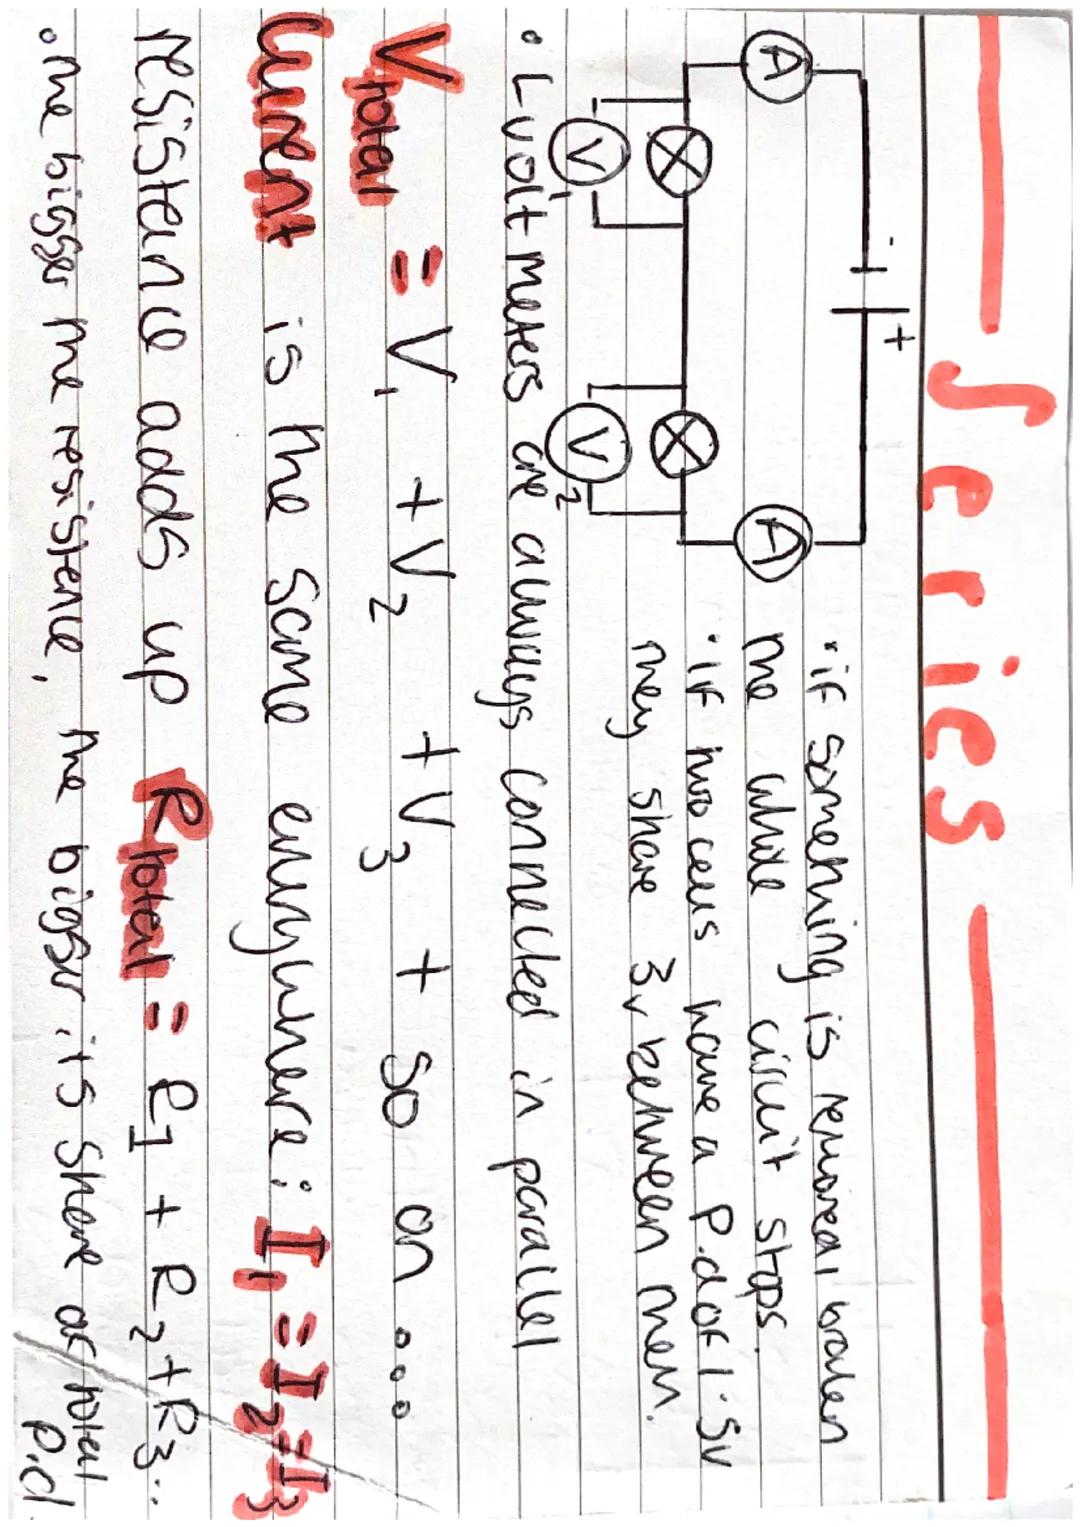 Series
- +
A A
V1 V2
• if something is removed/ broken
the whole circuit stops.
• if two cells have a P.d of 1.5v
they share 3v between them.
• Lvolt meters are always connected in parallel
Vtotal = V1 + V2 + V3 + so on ...
Current is the same everywhere: I1 = I2 = I3
resistance adds up Rtotal = R1 + R2 + R3...
• the bigger the resistence, the bigger its share of total
P.d